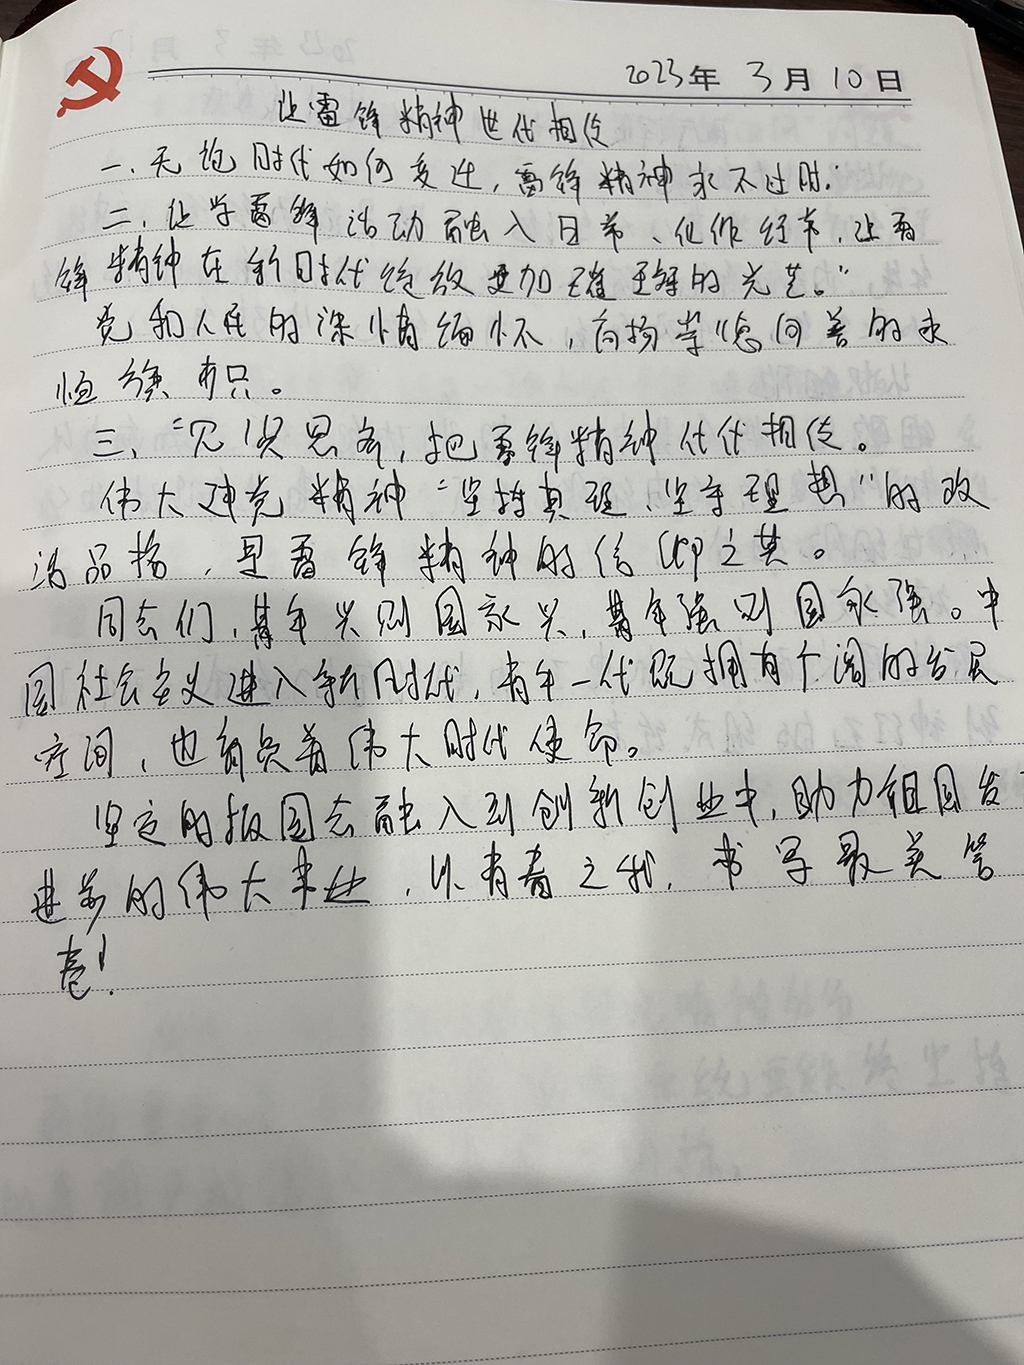 2023年 3月10日
让雷锋精神世代相传
一、无论时代如何变迁，雷锋精神永不过时。
二、让学雷锋活动融入日常、化作经常，让雷
锋精神在新时代绽放更加璀璨的光芒。"
党和人民的深情缅怀，向扬崇德向善的永
恒旗帜。
三、"见贤思齐，把雷锋精神代代相传。
伟大建党精神"坚持真理、坚守理想"的政
治品格，是雷锋精神的信仰之基。
同志们，青年兴则国家兴，青年强则国家强。中
国社会主义进入新时代，青年一代既拥有广阔的发展
空间，也肩负着伟大时代使命。
坚定的报国志融入到创新创业中，助力祖国发
进步的伟大事业，以青春之我，书写最美答
卷！